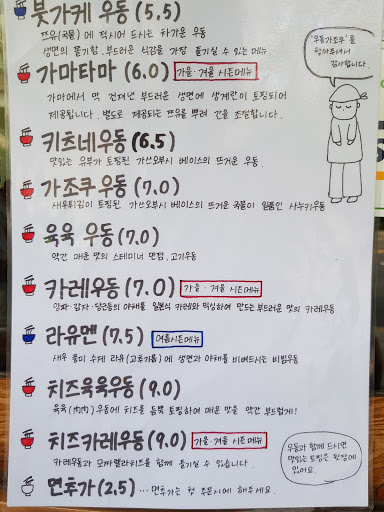 붓가케 우동 (5.5)
쯔유(국물)에 적시어 드시는 차가운 우동
생면의 쫄기함, 부드러운 식감을 가장 즐기실 수 있는 메뉴
가마타마 (6.0) 가을·겨울 시즌메뉴
가마에서 막 건져낸 부드러운 생면에 생계란이 토핑되어
제공됩니다. 별도로 제공되는 쯔유를 뿌려 간을 조절합니다.
키츠네우동 (6.5)
맛있는 유부가 토핑된 가쓰오부시 베이스의 뜨거운 우동.
가조쿠우동 (7.0)
새우튀김이 토핑된 가쓰오부시 베이스의 뜨거운 국물이 일품인 사누키우동
육육 우동 (7.0)
약간 매운 맛의 스테미너 만점, 고기우동
카레우동 (7.0) 가을·겨울 시즌메뉴
양파·감자·당근등의 야채를 일본식 카레와 믹싱하여 만드는 부드러운 맛의 카레우동
라유멘 (7.5) 여름시즌메뉴
새우 풍미 수제 라유(고추기름)에 생면과 야채를 비벼드시는 비빔우동
치즈육육우동 (9.0)
육육(肉肉)우동에 치즈를 듬뿍 토핑하여 매운 맛을 약간 부드럽게!
치즈카레우동 (9.0) 가을·겨울 시즌메뉴
카레우동과 모짜렐라치즈를 함께 즐기실 수 있습니다.
면추가 (2.5) ... 면추가는 첫 주문시에 해주세요.
'우동가조쿠'를
찾아주셔서
감사합니다.
우동과 함께 드시면
맛있는 토핑은 뒷장에
있어요.